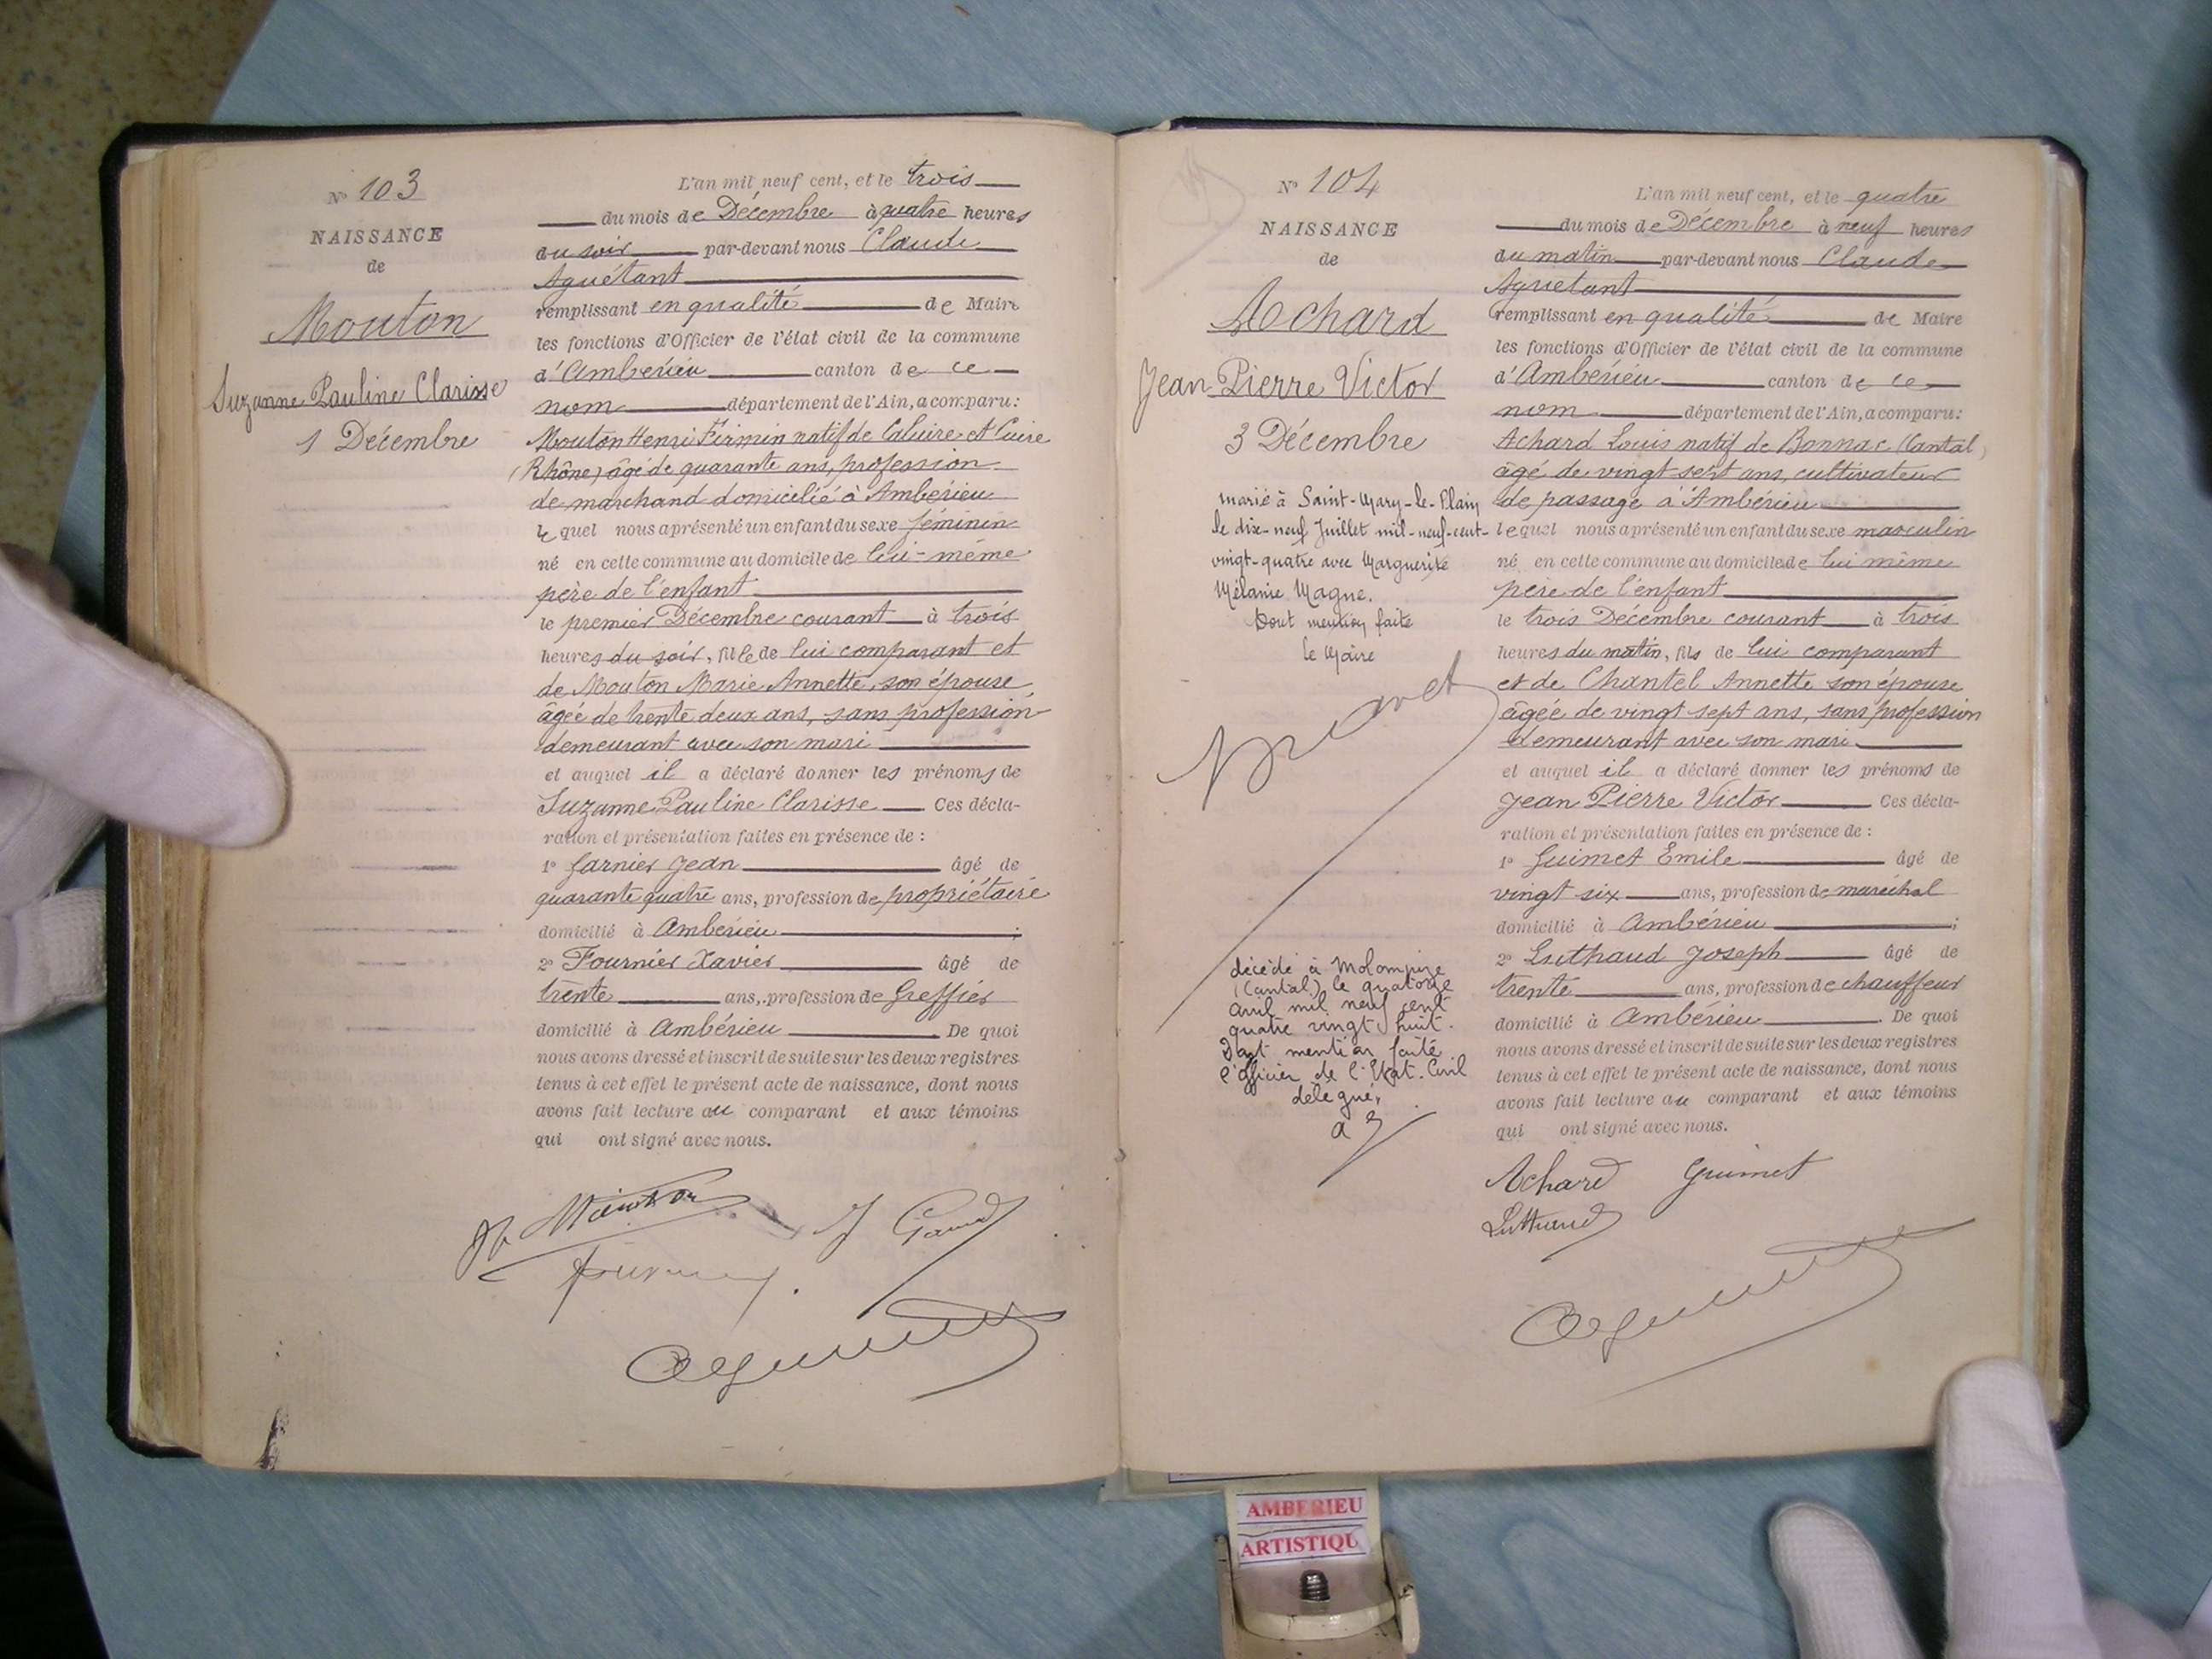 N° 103
NAISSANCE
de
Mouton
Suzanne Pauline Clarisse
1 Décembre
L'an mil neuf cent, et le trois
du mois de Décembre à quatre heures
du soir par-devant nous Claude
Aguétant
remplissant en qualité de Maire
les fonctions d'Officier de l'état civil de la commune
d'Ambérieu canton de ce
nom département de l'Ain, a comparu:
Mouton Henri Firmin natif de Caluire et Cuire
(Rhône) âgé de quarante ans, profession
de marchand domicilié à Ambérieu
lequel nous a présenté un enfant du sexe féminin
né en cette commune au domicile de lui-même
père de l'enfant
le premier Décembre courant à trois
heures du soir, fille de lui comparant et
de Mouton Marie Annette, son épouse,
âgée de trente deux ans, sans profession
demeurant avec son mari
et auquel il a déclaré donner les prénoms de
Suzanne Pauline Clarisse Ces décla-
ration et présentation faites en présence de :
1° Garnier Jean âgé de
quarante quatre ans, profession de propriétaire
domicilié à Ambérieu ;
2° Fournier Xavier âgé de
trente ans, profession de Greffier
domicilié à Ambérieu De quoi
nous avons dressé et inscrit de suite sur les deux registres
tenus à cet effet le présent acte de naissance, dont nous
avons fait lecture au comparant et aux témoins
qui ont signé avec nous.
N° 104
NAISSANCE
de
Achard
Jean Pierre Victor
3 Décembre
marié à Saint-Mary-le-Plain
le dix-neuf Juillet mil-neuf-cent-
vingt-quatre avec Marguerite
Mélanie Magne.
Dont mention faite
le Maire
décédé à Molompize
(Cantal) le quatorze
avril mil neuf cent
quatre vingt huit.
Dont mention faite
l'officier de l'Etat-Civil
délégué,
L'an mil neuf cent, et le quatre
du mois de Décembre à neuf heures
du matin par-devant nous Claude
Aguétant
remplissant en qualité de Maire
les fonctions d'Officier de l'état civil de la commune
d'Ambérieu canton de ce
nom département de l'Ain, a comparu:
Achard Louis natif de Bonnac (Cantal)
âgé de vingt sept ans, cultivateur
de passage à Ambérieu
lequel nous a présenté un enfant du sexe masculin
né en cette commune au domicile de lui même
père de l'enfant
le trois Décembre courant à trois
heures du matin, fils de lui comparant
et de Chantel Annette son épouse
âgée de vingt sept ans, sans profession
demeurant avec son mari
et auquel il a déclaré donner les prénoms de
Jean Pierre Victor Ces décla-
ration et présentation faites en présence de :
1° Guimet Emile âgé de
vingt six ans, profession de maréchal
domicilié à Ambérieu ;
2° Luthaud Joseph âgé de
trente ans, profession de chauffeur
domicilié à Ambérieu. De quoi
nous avons dressé et inscrit de suite sur les deux registres
tenus à cet effet le présent acte de naissance, dont nous
avons fait lecture au comparant et aux témoins
qui ont signé avec nous.
Achard Guimet
Luthaud
AMBERIEU
ARTISTIQU